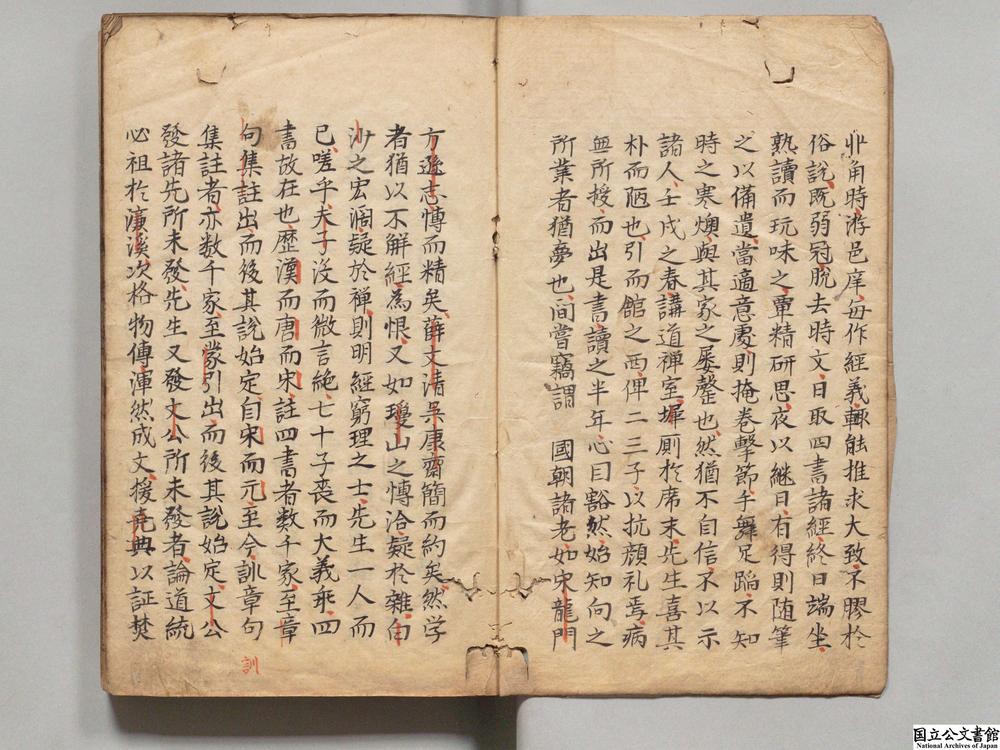 丱角時游邑庠毎作經義輙能推求大致不膠於
俗説既弱冠脱去時文日取四書諸經終日端坐
熟讀而玩味之覃精研思夜以継日有得則随筆
之以備遺當適意處則掩巻擊節手舞足蹈不知
時之寒燠與其家之屡罄也然猶不自信不以示
諸人壬戌之春講道禅室墀厠於席末先生喜其
朴而陋也引而館之西俾二三子以抗顔礼焉病
無所授而出是書讀之半年心目豁然始知向之
所業者猶夢也間嘗竊謂 國朝諸老如宋龍門
方遜志慱而精矣薛文清呉康齋簡而約矣然学
者猶以不解經為恨又如瓊山之慱洽疑於雜白
沙之宏濶疑於禅則明經窮理之士先生一人而
已嗟乎夫子没而微言絶七十子喪而大義乖四
書故在也歴漢而唐而宋註四書者数千家至章
句集註出而後其説始定自宋而元至今訓章句
集註者亦数千家至蒙引出而後其説始定文公
發諸先所未發先生又發文公所未發者論道統
必祖於濂溪次格物傳渾然成文援堯典以証焚
訓
国立公文書館
National Archives of Japan